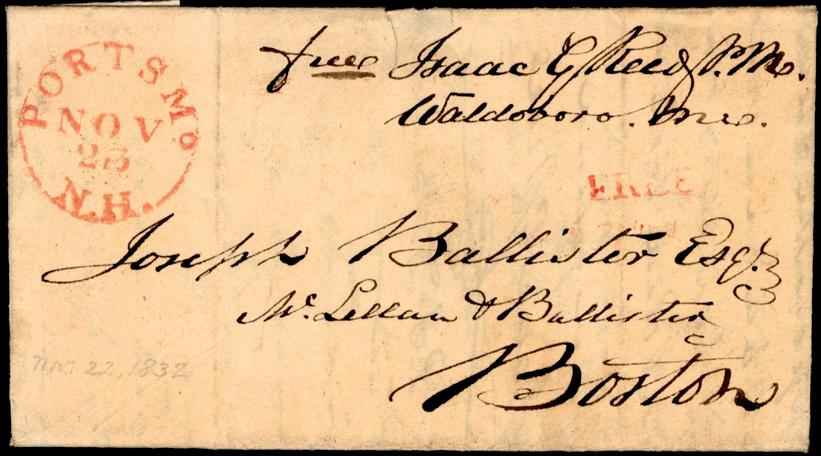 free Isaac G Reed P.M.
Waldoboro. Me.
PORTSMo
NOV
23
N.H.
FREE
Joseph Ballister Esqr
Mc Lellan & Ballister
Boston
Nov. 22, 1832